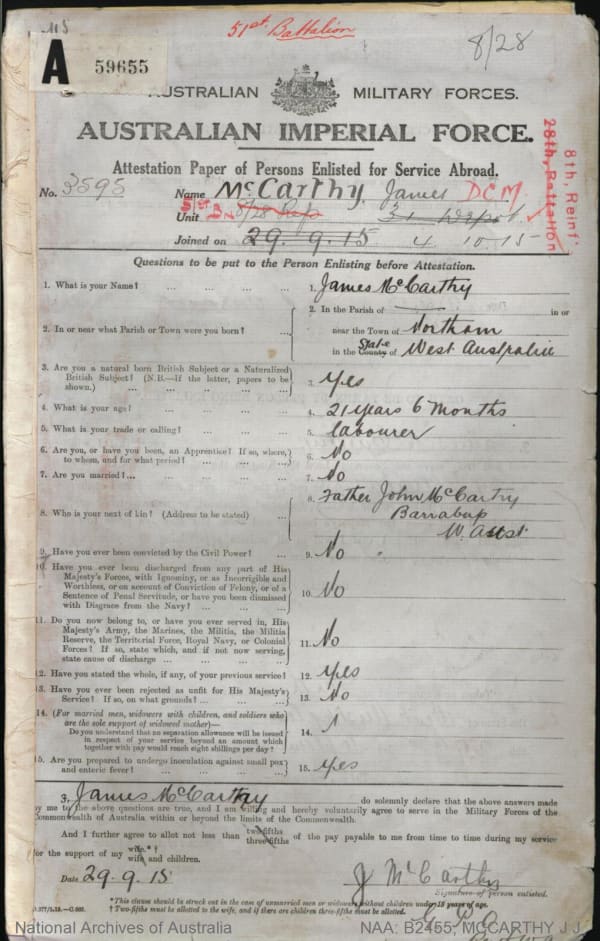 51st Battalion
8/28
A 59655
AUSTRALIAN MILITARY FORCES.
AUSTRALIAN IMPERIAL FORCE.
Attestation Paper of Persons Enlisted for Service Abroad.
No. 3595 Name McCarthy James D C M.
Unit 51st Bn 8/28 Refs
8th, Reinf
28th, Battalion
Joined on 29.9.15 4 10 15
Questions to be put to the Person Enlisting before Attestation.
1. What is your Name? ... ... ... 1. James McCarthy
2. In or near what Parish or Town were you born? ... 2. In the Parish of in or
near the Town of Northam
in the County State of West Australia
3. Are you a natural born British Subject or a Naturalized
British Subject? (N.B.—If the latter, papers to be
shown.) ... ... ... 3. Yes
4. What is your age? ... ... ... 4. 21 years 6 months
5. What is your trade or calling? ... ... 5. labourer
6. Are you, or have you been, an Apprentice? If so, where,
to whom, and for what period? ... ... 6. No
7. Are you married?... ... ... 7. No
8. Who is your next of kin? (Address to be stated) ... 8. Father John McCarthy
Barrabup
W. Aust
9. Have you ever been convicted by the Civil Power? ... 9. No
10. Have you ever been discharged from any part of His
Majesty's Forces, with Ignominy, or as Incorrigible and
Worthless, or on account of Conviction of Felony, or of a
Sentence of Penal Servitude, or have you been dismissed
with Disgrace from the Navy? ... ... 10. No
11. Do you now belong to, or have you ever served in, His
Majesty's Army, the Marines, the Militia, the Militia
Reserve, the Territorial Force, Royal Navy, or Colonial
Forces? If so, state which, and if not now serving,
state cause of discharge ... ... ... 11. No
12. Have you stated the whole, if any, of your previous service? 12. Yes
13. Have you ever been rejected as unfit for His Majesty's
Service? If so, on what grounds? ... ... 13. No
14. (For married men, widowers with children, and soldiers who
are the sole support of widowed mother)—
Do you understand that no separation allowance will be issued
in respect of your service beyond an amount which
together with pay would reach eight shillings per day? 14.
15. Are you prepared to undergo inoculation against small pox
and enteric fever? ... ... ... 15. Yes
I, James McCarthy do solemnly declare that the above answers made
by me to the above questions are true, and I am willing and hereby voluntarily agree to serve in the Military Forces of the
Commonwealth of Australia within or beyond the limits of the Commonwealth.
And I further agree to allot not less than two-fifths three-fifths of the pay payable to me from time to time during my service
for the support of my wife.*† wife and children.
Date 29.9.15 J McCarthy
Signature of person enlisted.
*This clause should be struck out in the case of unmarried men or widowers without children under 18 years of age.
† Two-fifths must be allotted to the wife, and if there are children three-fifths must be allotted.
National Archives of Australia NAA: B2455, MCCARTHY J J